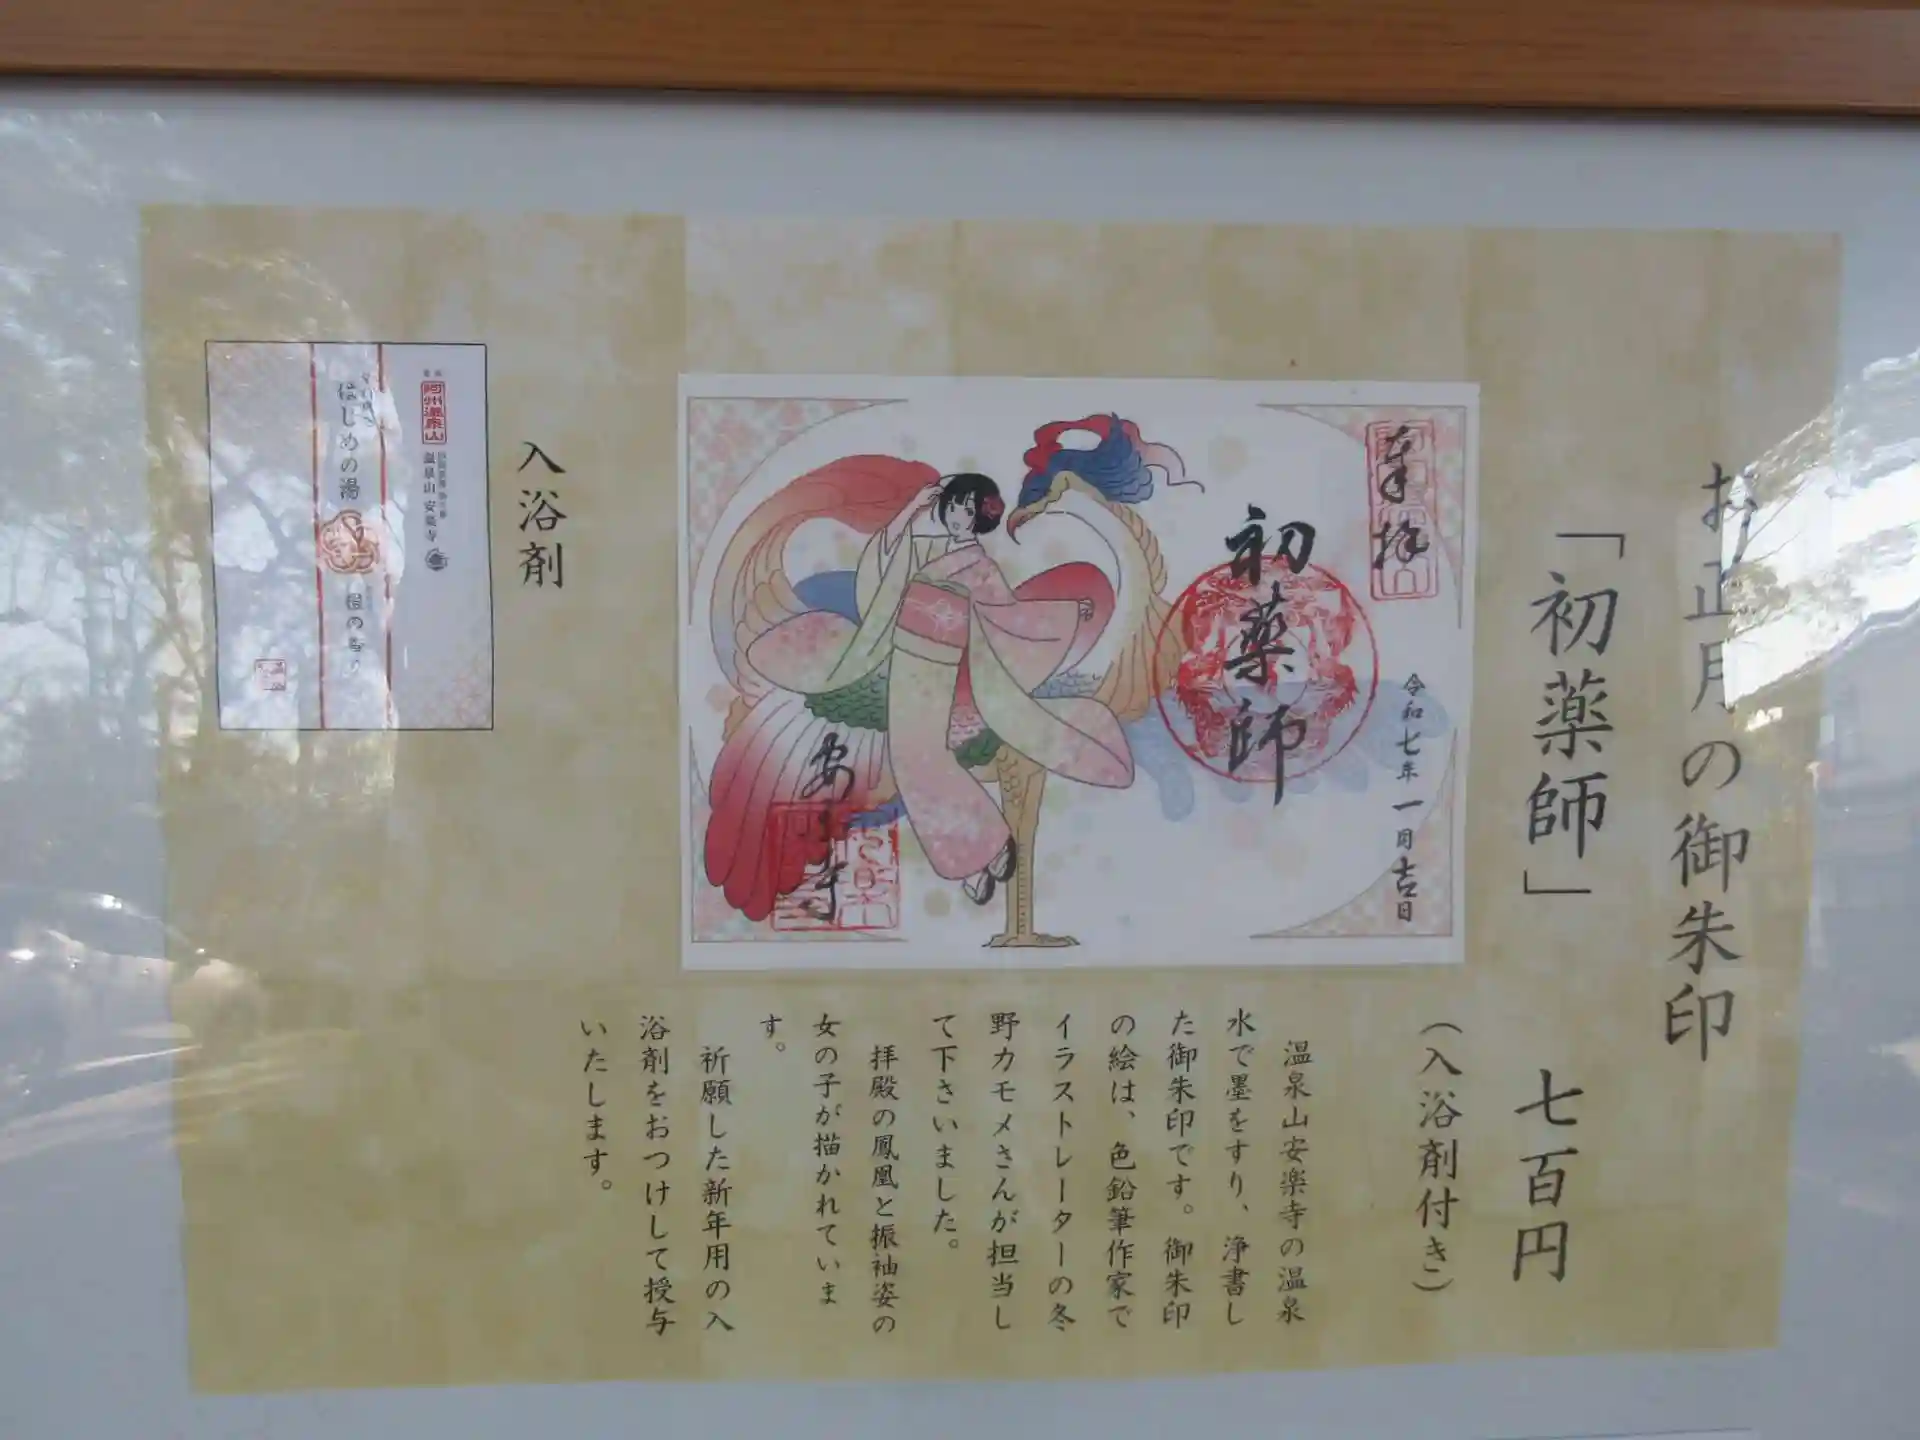 お正月の御朱印
「初薬師」 七百円
(入浴剤付き)
奉拝
令和七年一月吉日
初薬師
安楽寺
温泉山安楽寺の温泉
水で墨をすり、浄書し
た御朱印です。御朱印
の絵は、色鉛筆作家で
イラストレーターの冬
野カモメさんが担当し
て下さいました。
拝殿の鳳凰と振袖姿の
女の子が描かれていま
す。
祈願した新年用の入
浴剤をおつけして授与
いたします。
入浴剤
阿州温泉山
温泉山 安楽寺
はじめの湯